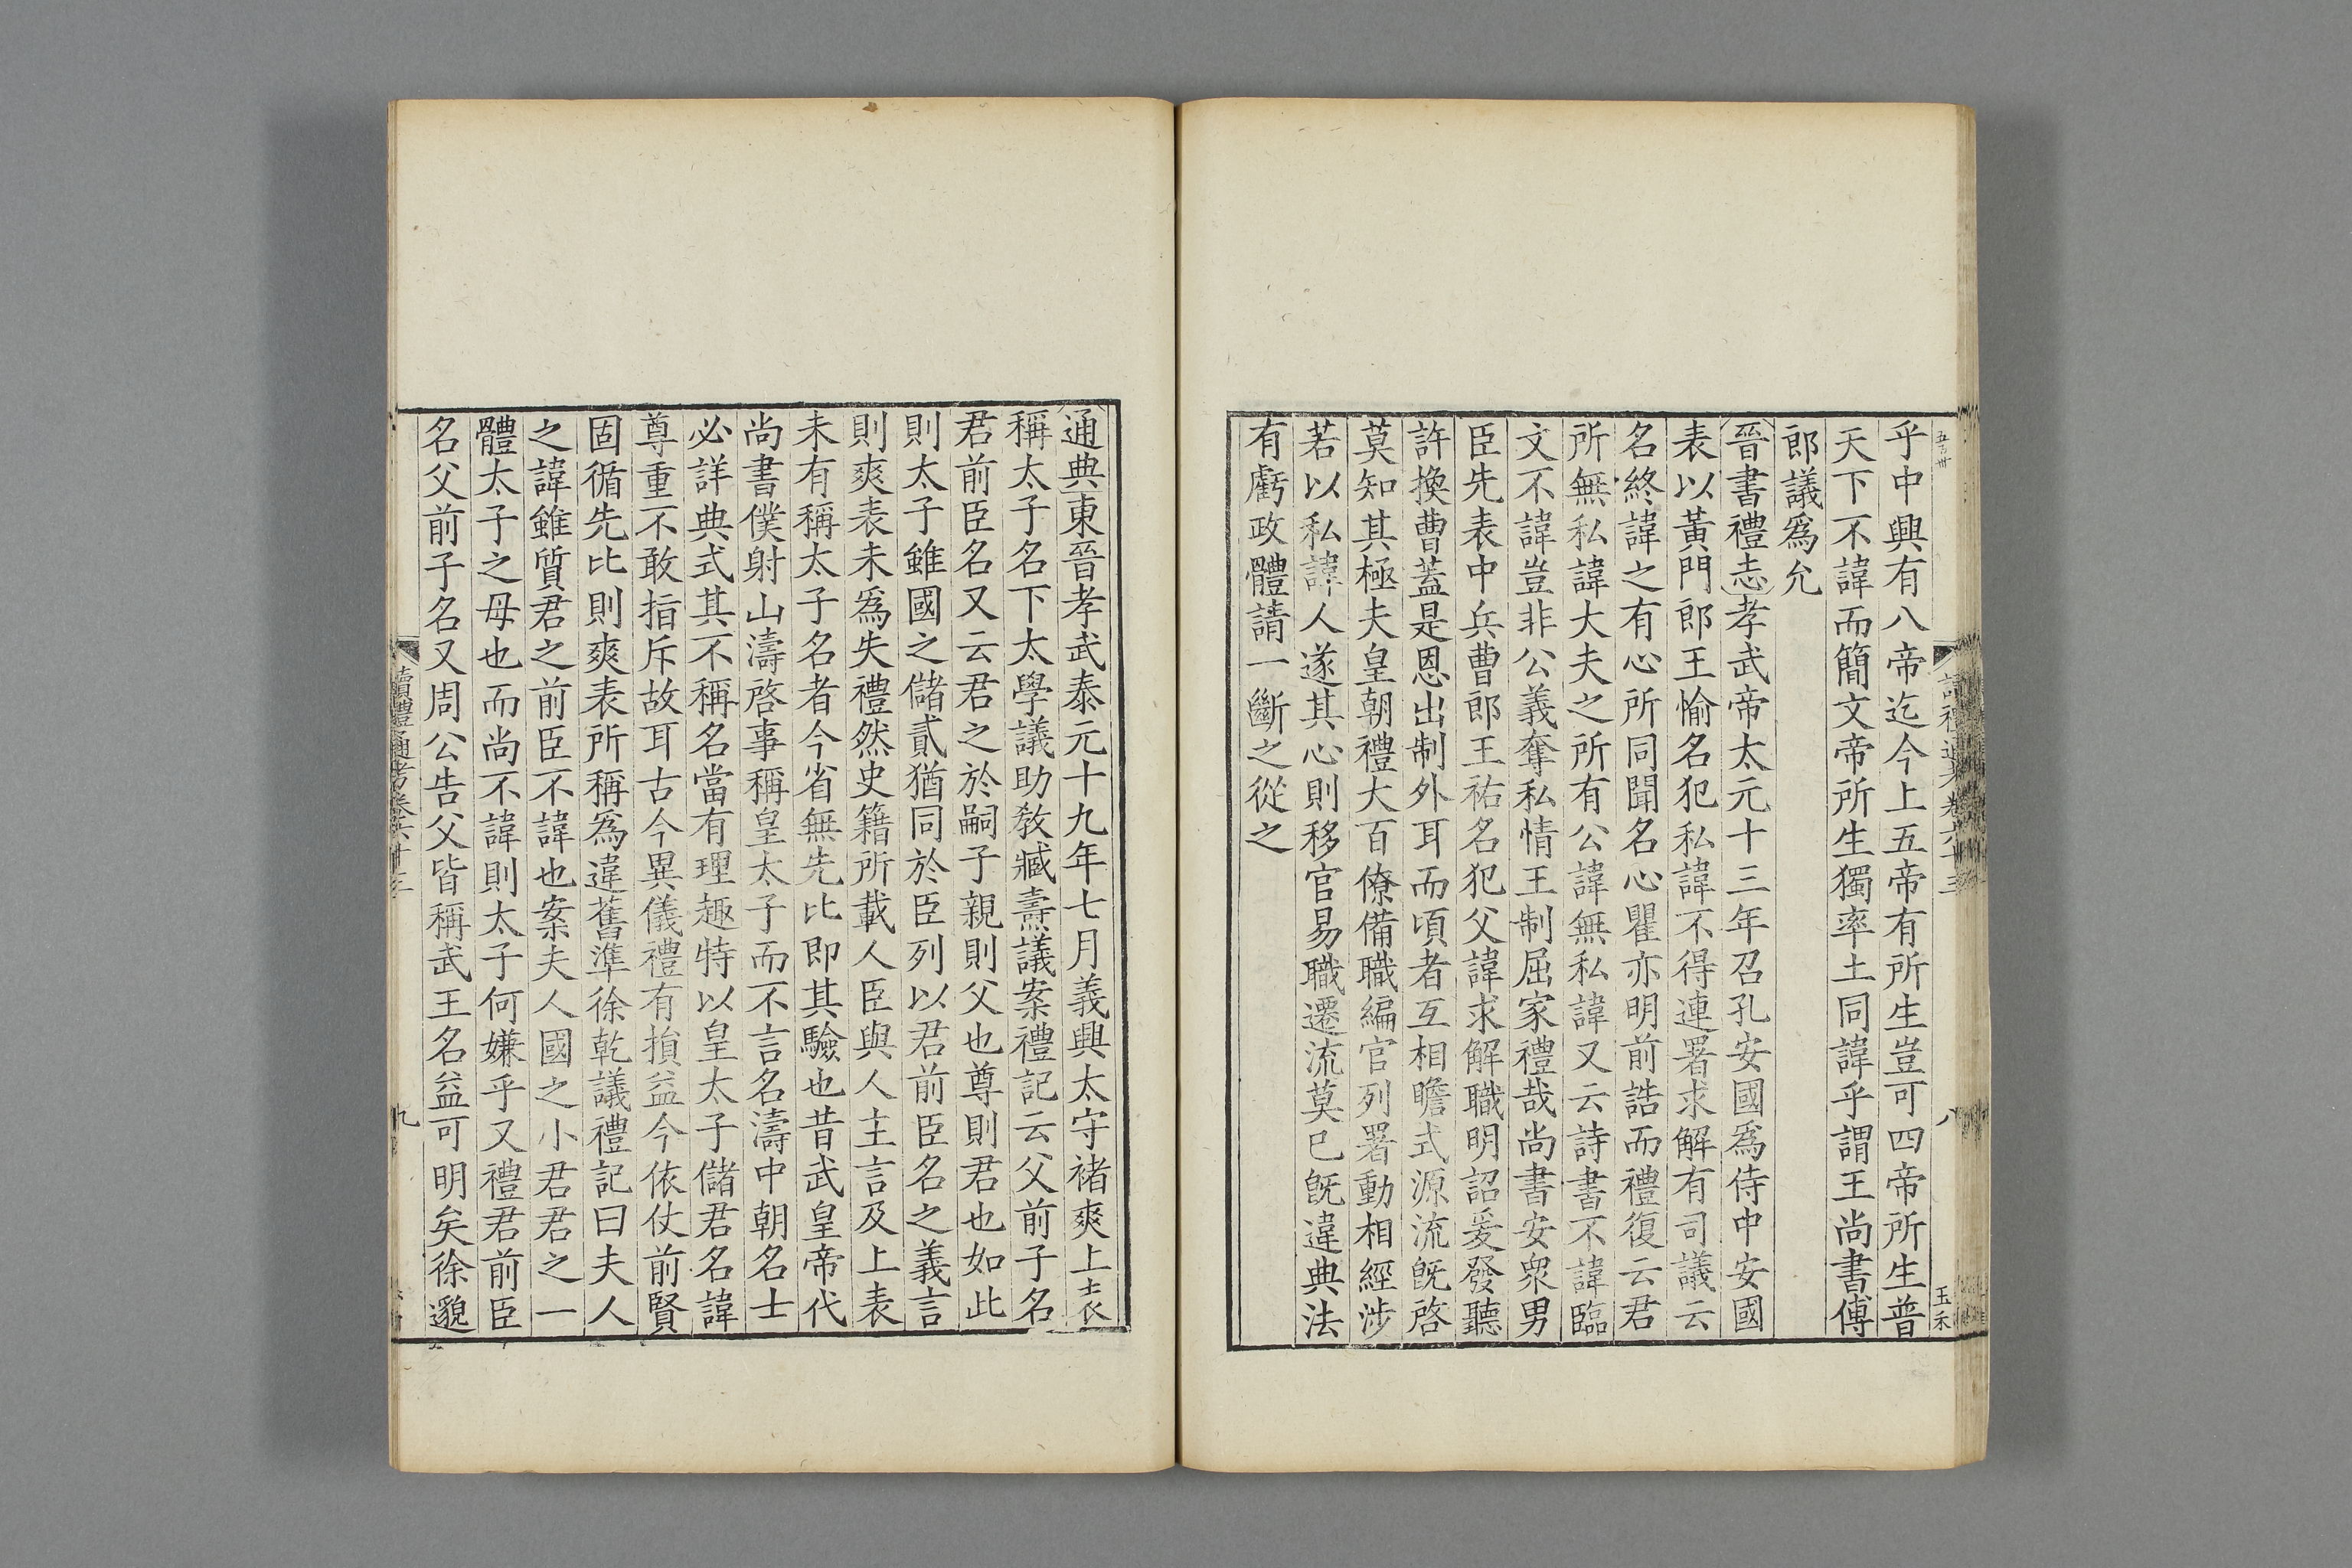 乎中興有八帝迄今上五帝有所生豈可四帝所生普
天下不諱而簡文帝所生獨率土同諱乎謂王尚書傅
郎議爲允
晉書禮志孝武帝太元十三年召孔安國爲侍中安國
表以黃門郎王愉名犯私諱不得連署求解有司議云
名終諱之有心所同聞名心瞿亦明前誥而禮復云君
所無私諱大夫之所有公諱無私諱又云詩書不諱臨
文不諱豈非公義奪私情王制屈家禮哉尚書安衆男
臣先表中兵曹郎王祐名犯父諱求解職明詔爰發聽
許換曹蓋是恩出制外耳而頃者互相瞻式源流旣啓
莫知其極夫皇朝禮大百僚備職編官列署動相經涉
若以私諱人遂其心則移官易職遷流莫已旣違典法
有虧政體請一斷之從之
八
玉禾
通典東晉孝武泰元十九年七月義興太守褚爽上表
稱太子名下太學議助敎臧燾議案禮記云父前子名
君前臣名又云君之於嗣子親則父也尊則君也如此
則太子雖國之儲貳猶同於臣列以君前臣名之義言
則爽表未爲失禮然史籍所載人臣與人主言及上表
未有稱太子名者今省無先比即其驗也昔武皇帝代
尚書僕射山濤啓事稱皇太子而不言名濤中朝名士
必詳典式其不稱名當有理趣特以皇太子儲君名諱
尊重不敢指斥故耳古今異儀禮有損益今依仗前賢
固循先比則爽表所稱爲違舊準徐乾議禮記曰夫人
之諱雖質君之前臣不諱也案夫人國之小君君之一
體太子之母也而尚不諱則太子何嫌乎又禮君前臣
名父前子名又周公告父皆稱武王名益可明矣徐邈
讀禮通考卷六十三
九